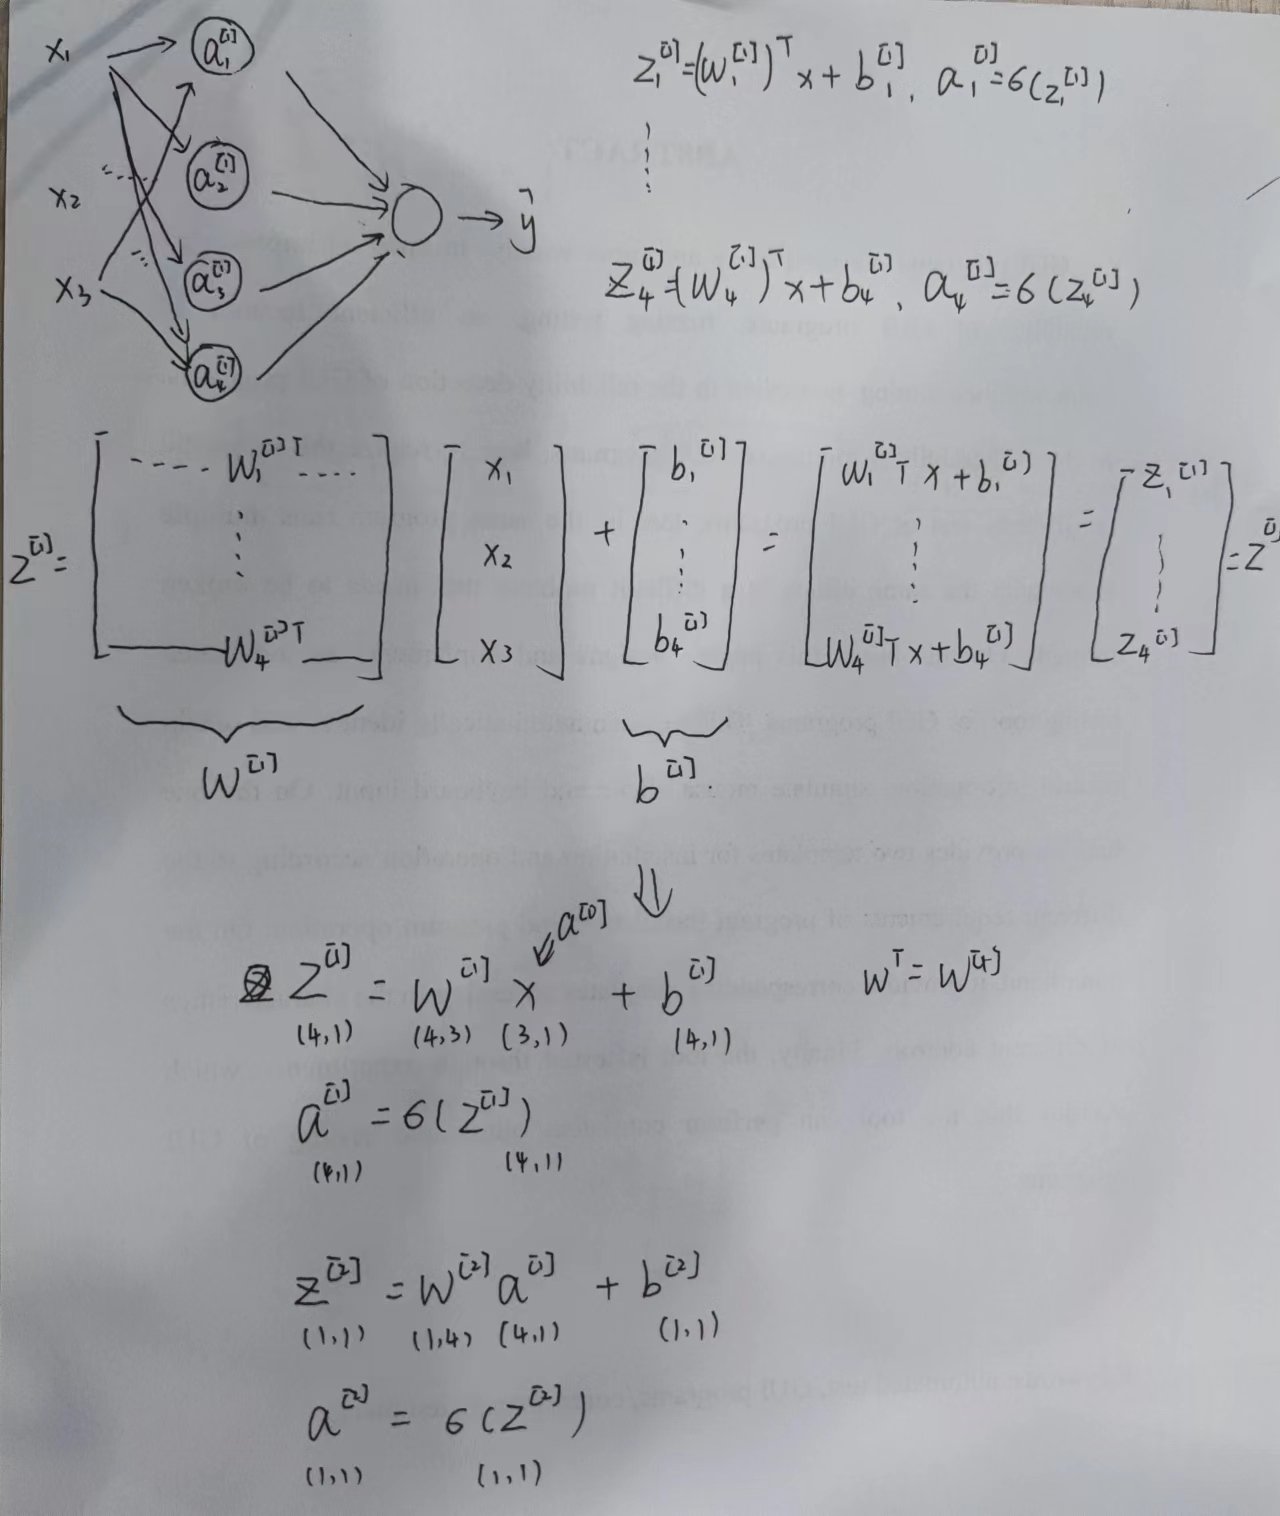 x₁ a₁^[1] z₁^[1]=(w₁^[1])^T x+b₁^[1], a₁^[1]=6(z₁^[1])
x₂ a₂^[1] ŷ
x₃ a₃^[1] z₄^[1]=(w₄^[1])^T x+b₄^[1], a₄^[1]=6(z₄^[1])
a₄^[1]
z^[1]= [ ---- w₁^[1]T ---- ⋮ — w₄^[1]T — ] [ x₁ x₂ x₃ ] + [ b₁^[1] ⋮ b₄^[1] ] = [ w₁^[1]T x+b₁^[1] ⋮ w₄^[1]T x+b₄^[1] ] = [ z₁^[1] ⋮ z₄^[1] ] = z^[1]
w^[1] b^[1]
⇓
a^[0]
z^[1] = w^[1] x + b^[1] w^T = w^[4]
(4,1) (4,3) (3,1) (4,1)
a^[1] = 6(z^[1])
(4,1) (4,1)
z^[2] = w^[2] a^[1] + b^[2]
(1,1) (1,4) (4,1) (1,1)
a^[2] = 6(z^[2])
(1,1) (1,1)